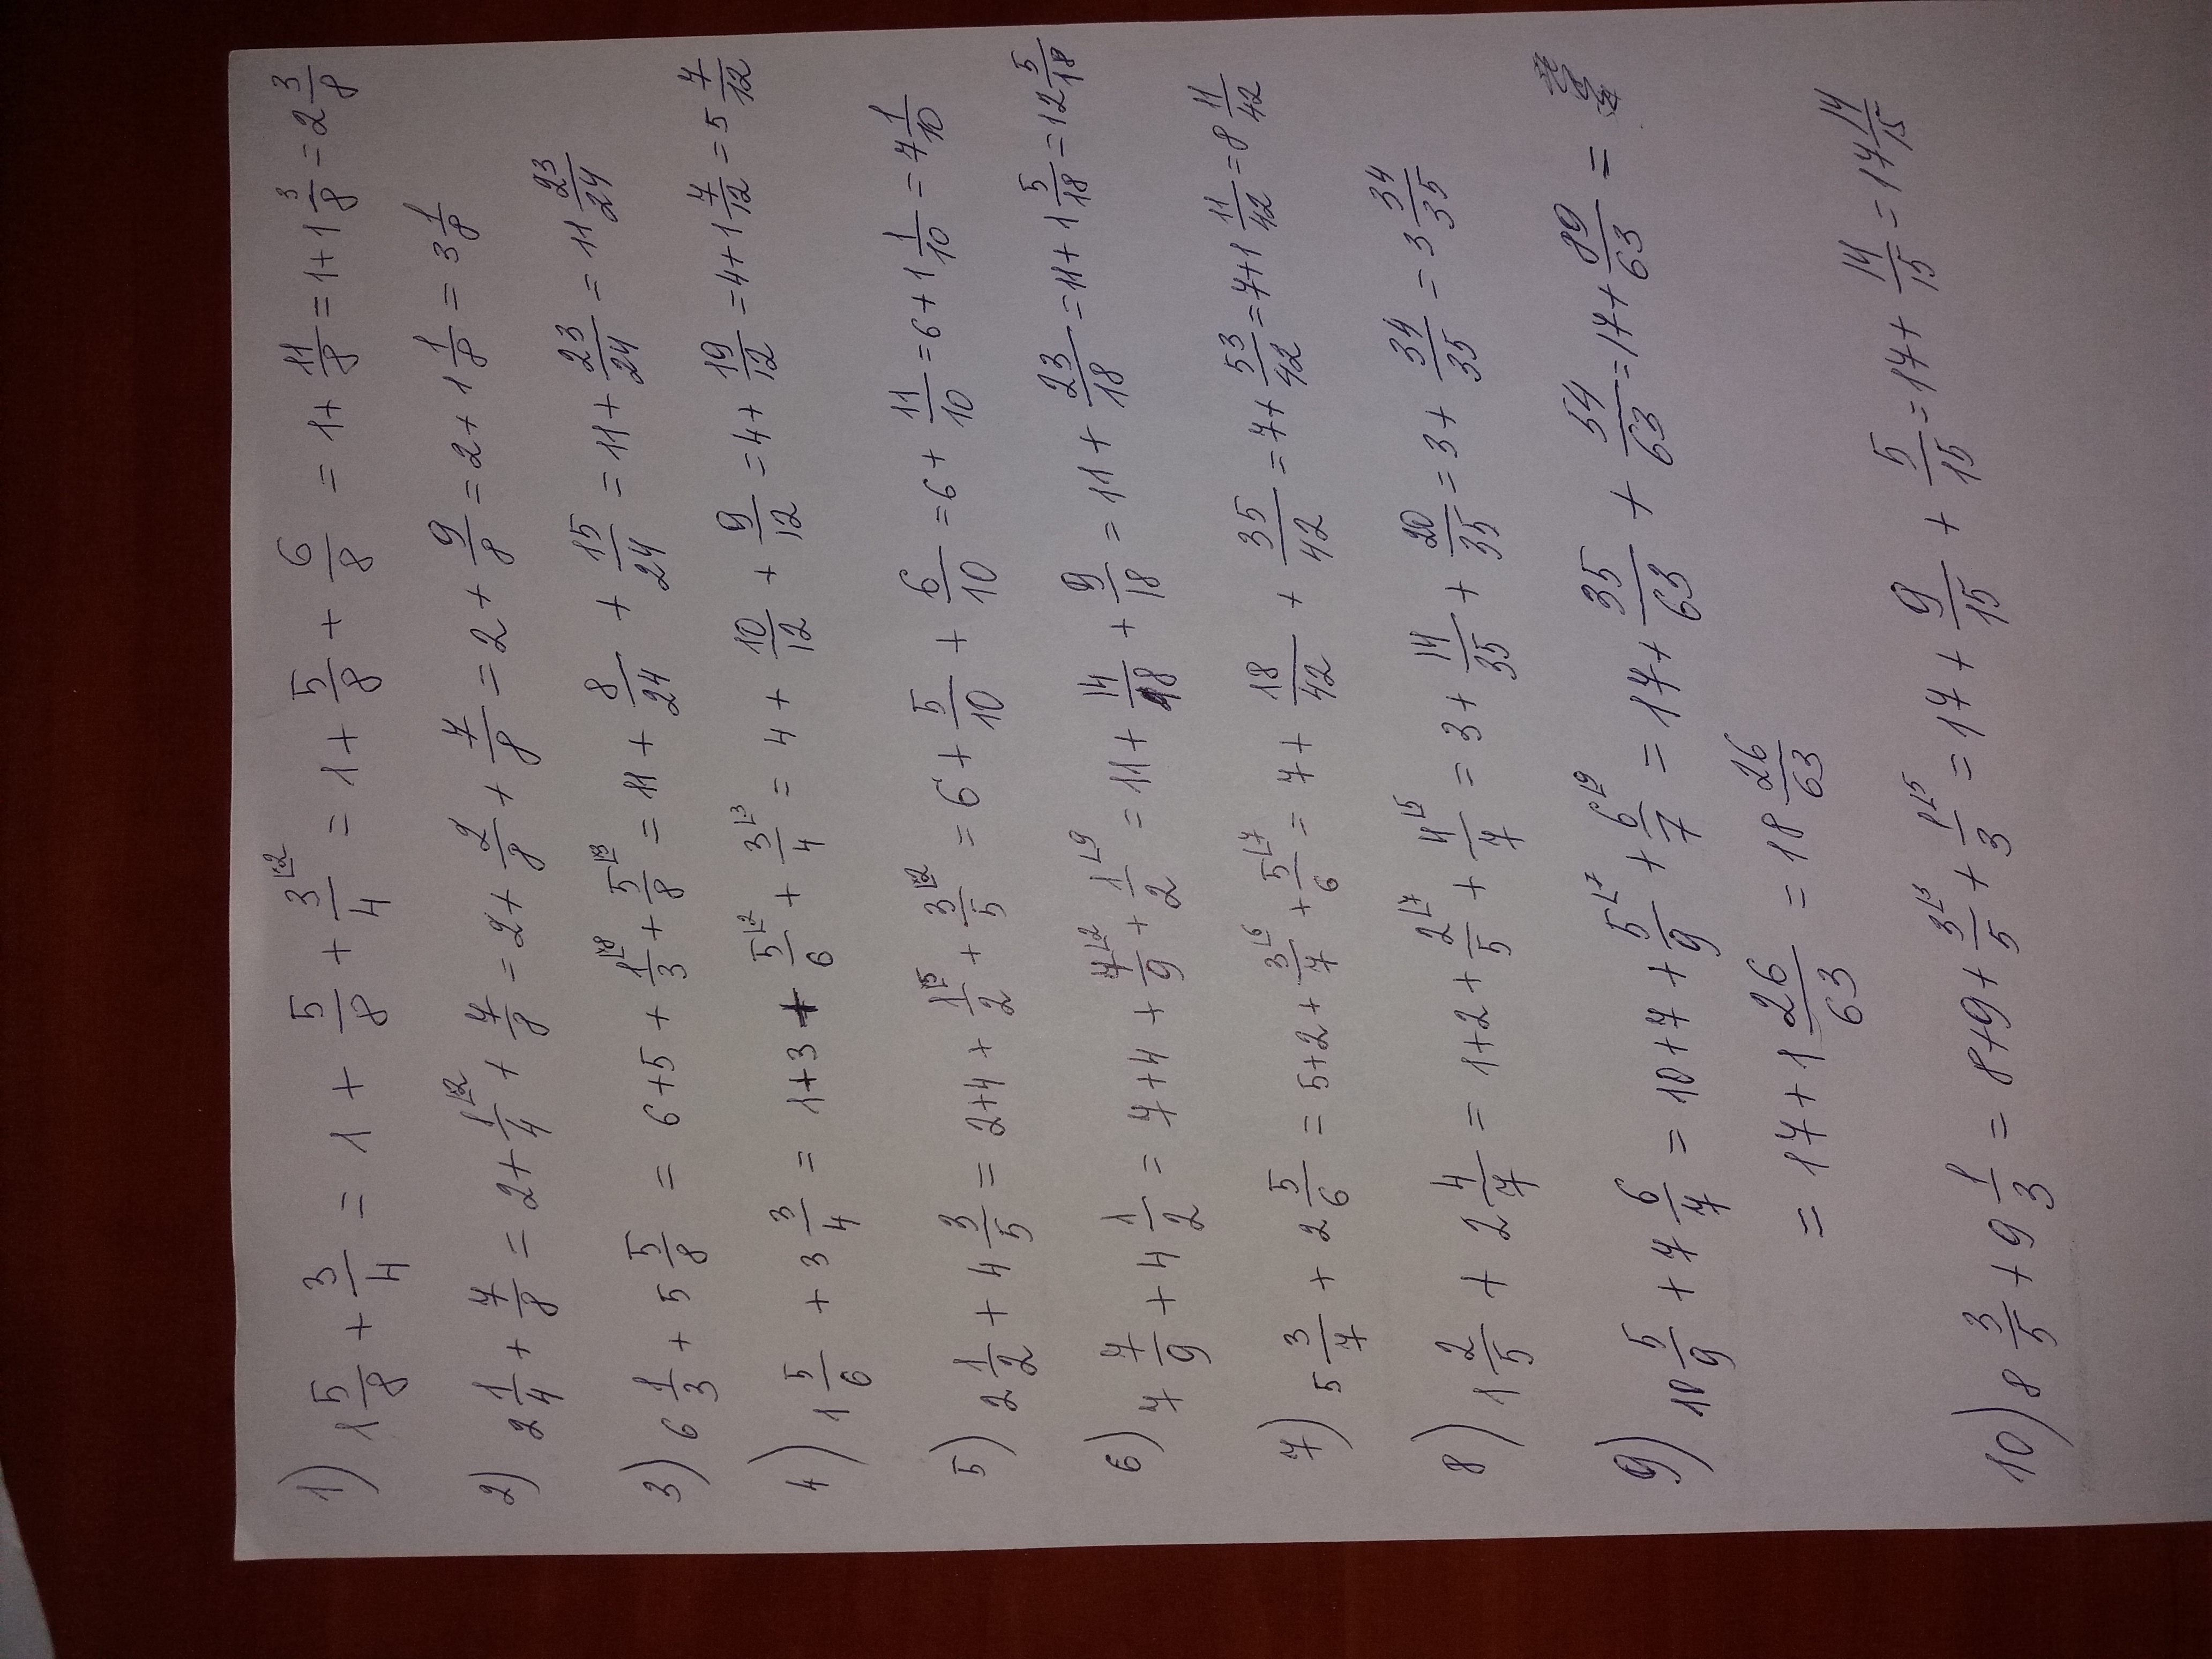 1) 1 5/8 + 3/4 = 1 + 5/8 + 3/4 ⌊2 = 1 + 5/8 + 6/8 = 1 + 11/8 = 1 + 1 3/8 = 2 3/8
2) 2 1/4 + 7/8 = 2 + 1/4 ⌊2 + 7/8 = 2 + 2/8 + 7/8 = 2 + 9/8 = 2 + 1 1/8 = 3 1/8
3) 6 1/3 + 5 5/8 = 6 + 5 + 1/3 ⌊8 + 5/8 ⌊3 = 11 + 8/24 + 15/24 = 11 + 23/24 = 11 23/24
4) 1 5/6 + 3 3/4 = 1 + 3 + 5/6 ⌊2 + 3/4 ⌊3 = 4 + 10/12 + 9/12 = 4 + 19/12 = 4 + 1 7/12 = 5 7/12
5) 2 1/2 + 4 3/5 = 2 + 4 + 1/2 ⌊5 + 3/5 ⌊2 = 6 + 5/10 + 6/10 = 6 + 11/10 = 6 + 1 1/10 = 7 1/10
6) 7 7/9 + 4 1/2 = 7 + 4 + 7/9 ⌊2 + 1/2 ⌊9 = 11 + 14/18 + 9/18 = 11 + 23/18 = 11 + 1 5/18 = 12 5/18
7) 5 3/7 + 2 5/6 = 5 + 2 + 3/7 ⌊6 + 5/6 ⌊7 = 7 + 18/42 + 35/42 = 7 + 53/42 = 7 + 1 11/42 = 8 11/42
8) 1 2/5 + 2 4/7 = 1 + 2 + 2/5 ⌊7 + 4/7 ⌊5 = 3 + 14/35 + 20/35 = 3 + 34/35 = 3 34/35
9) 10 5/9 + 7 6/7 = 10 + 7 + 5/9 ⌊7 + 6/7 ⌊9 = 17 + 35/63 + 54/63 = 17 + 89/63 =
= 17 + 1 26/63 = 18 26/63
10) 8 3/5 + 9 1/3 = 8 + 9 + 3/5 ⌊3 + 1/3 ⌊5 = 17 + 9/15 + 5/15 = 17 + 14/15 = 17 14/15